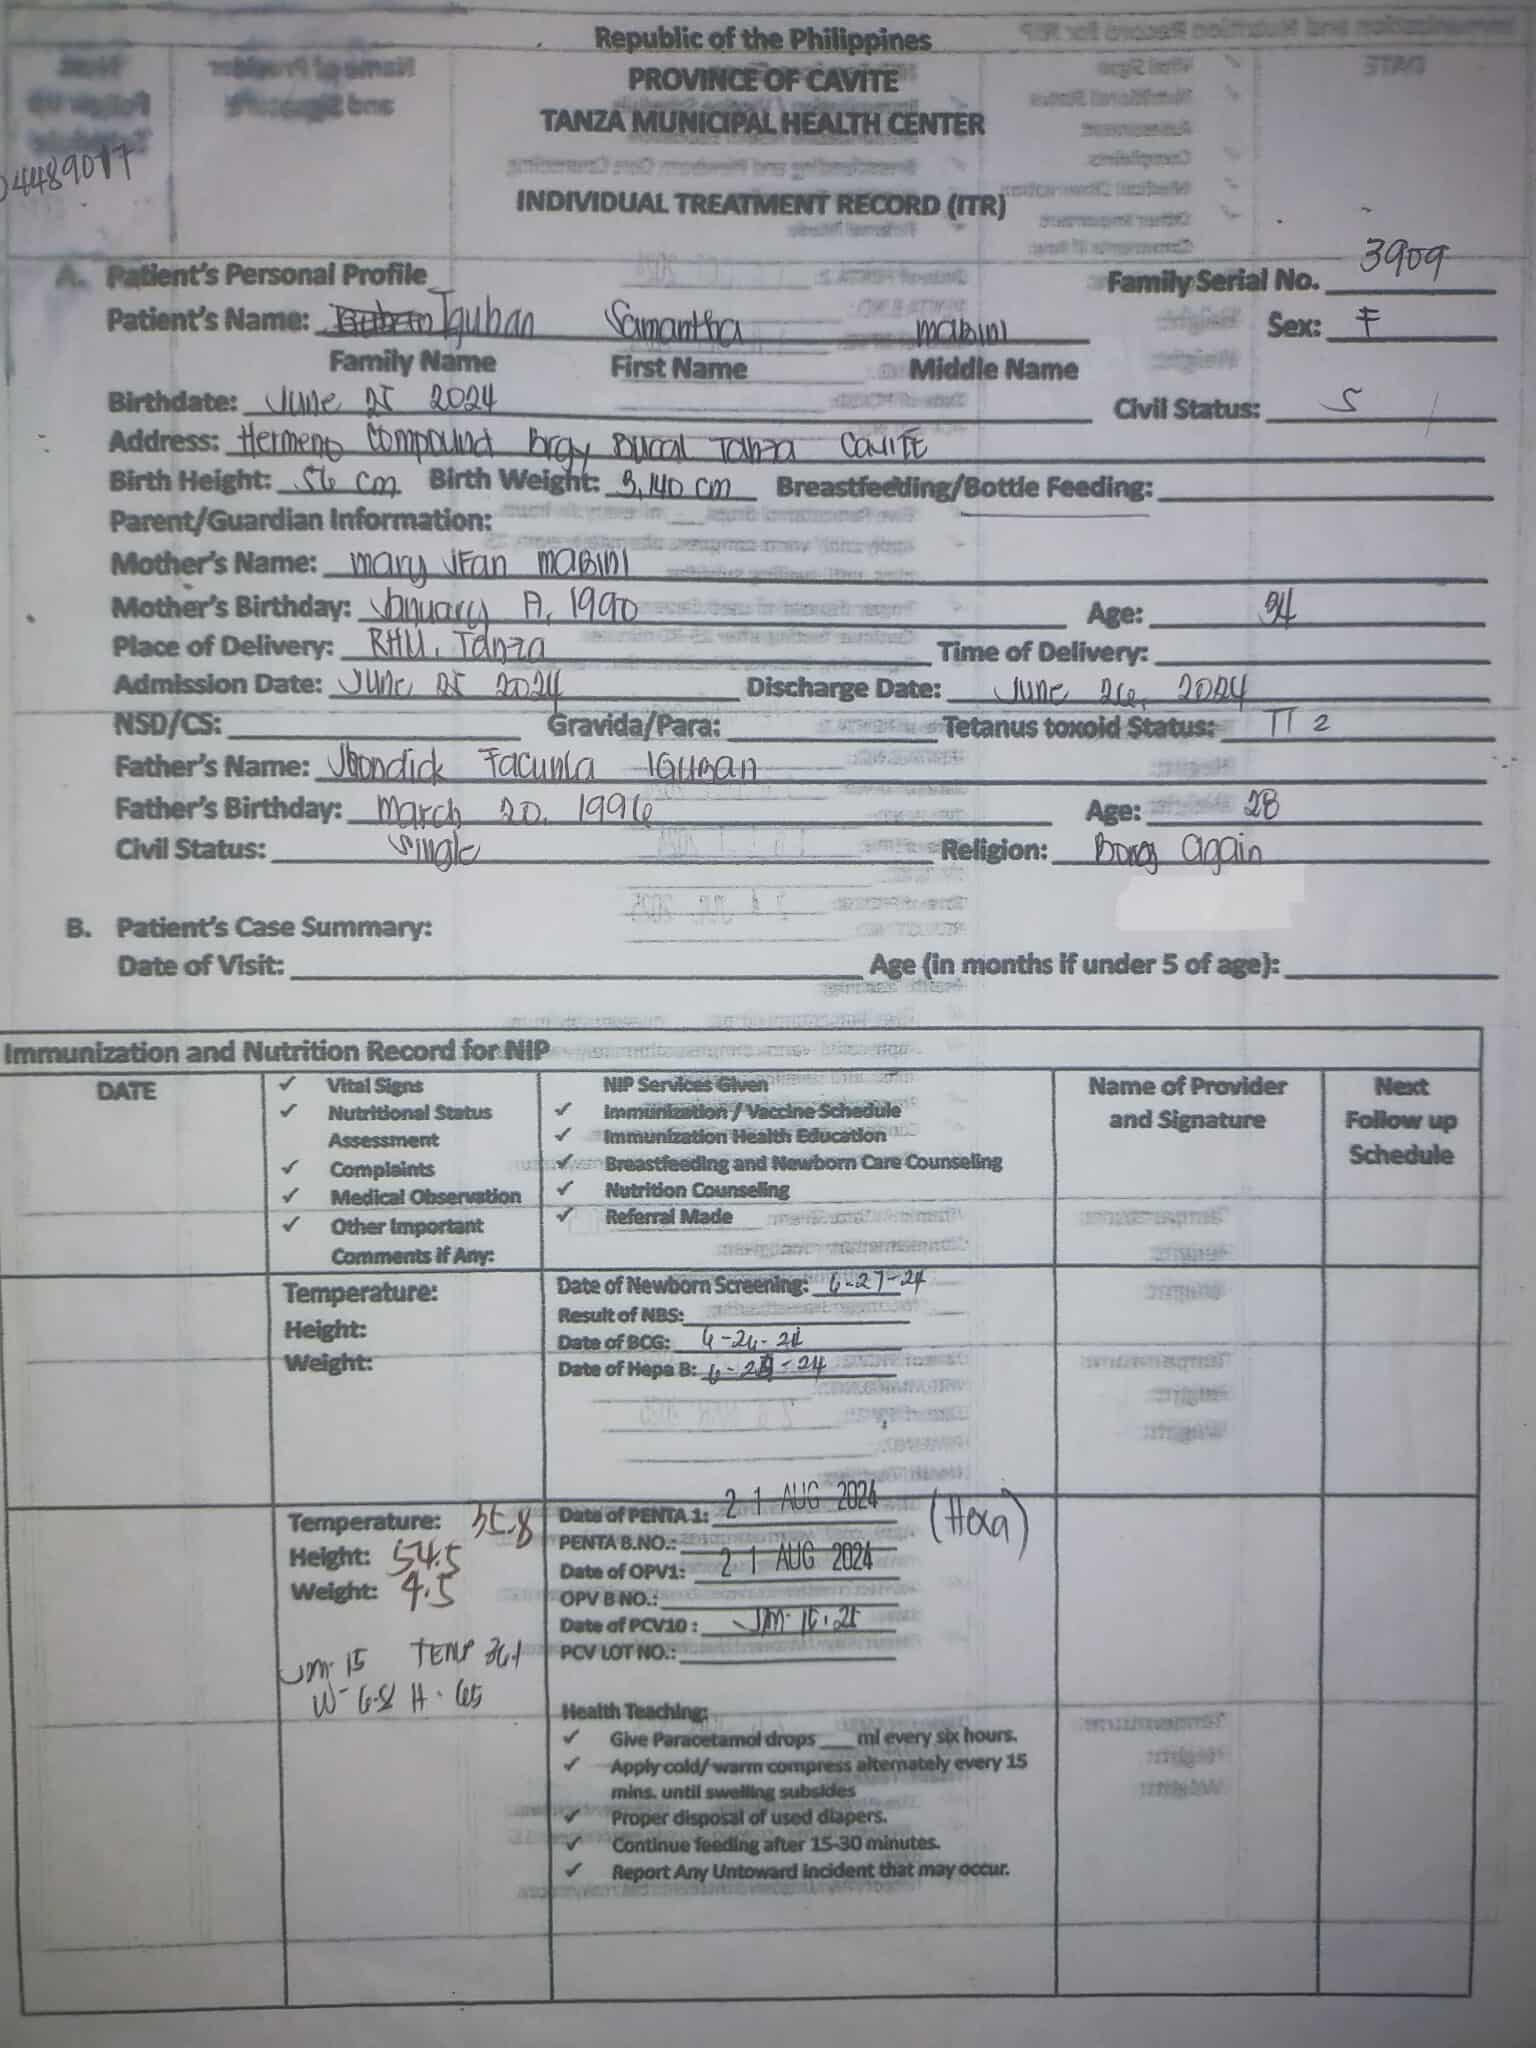 Republic of the Philippines
PROVINCE OF CAVITE
TANZA MUNICIPAL HEALTH CENTER
4489017
INDIVIDUAL TREATMENT RECORD (ITR)
A. Patient's Personal Profile
Family Serial No. 3909
Patient's Name: Iguban Samantha MABINI Sex: F
Family Name First Name Middle Name
Birthdate: June 25 2024 Civil Status: S
Address: Compound Brgy Bucal Tanza CAVITE
Birth Height: 56 cm Birth Weight: 3,140 cm Breastfeeding/Bottle Feeding:
Parent/Guardian Information:
Mother's Name: Mary JEan MABINI
Mother's Birthday: January 1990 Age: 34
Place of Delivery: RHU, Tanza Time of Delivery:
Admission Date: June 25 2024 Discharge Date: June 26, 2024
NSD/CS: Gravida/Para: Tetanus toxoid Status: TT 2
Father's Name: Facunla IGUBAN
Father's Birthday: March 20, 1996 Age: 28
Civil Status: Single Religion: again
B. Patient's Case Summary:
Date of Visit: Age (in months if under 5 of age):
Immunization and Nutrition Record for NIP
DATE
✓ Vital Signs
✓ Nutritional Status
Assessment
✓ Complaints
✓ Medical Observation
✓ Other Important
Comments if Any:
NIP Services Given
✓ Immunization / Vaccine Schedule
✓ Immunization Health Education
✓ Breastfeeding and Newborn Care Counseling
✓ Nutrition Counseling
✓ Referral Made
Name of Provider
and Signature
Next
Follow up
Schedule
Temperature:
Height:
Weight:
Date of Newborn Screening: 6-27-24
Result of NBS:
Date of BCG: 6-26-24
Date of Hepa B: 6- -24
Temperature: 35.8
Height: 54.5
Weight: 4.5
15 TEMP 36.1
W- 6.8 H- 65
Date of PENTA 1: 21 AUG 2024 (Hexa)
PENTA B.NO.:
Date of OPV1: 21 AUG 2024
OPV B NO.:
Date of PCV10 :
PCV LOT NO.:
Health Teaching:
✓ Give Paracetamol drops ___ ml every six hours.
✓ Apply cold/ warm compress alternately every 15
mins. until swelling subsides
✓ Proper disposal of used diapers.
✓ Continue feeding after 15-30 minutes.
✓ Report Any Untoward incident that may occur.